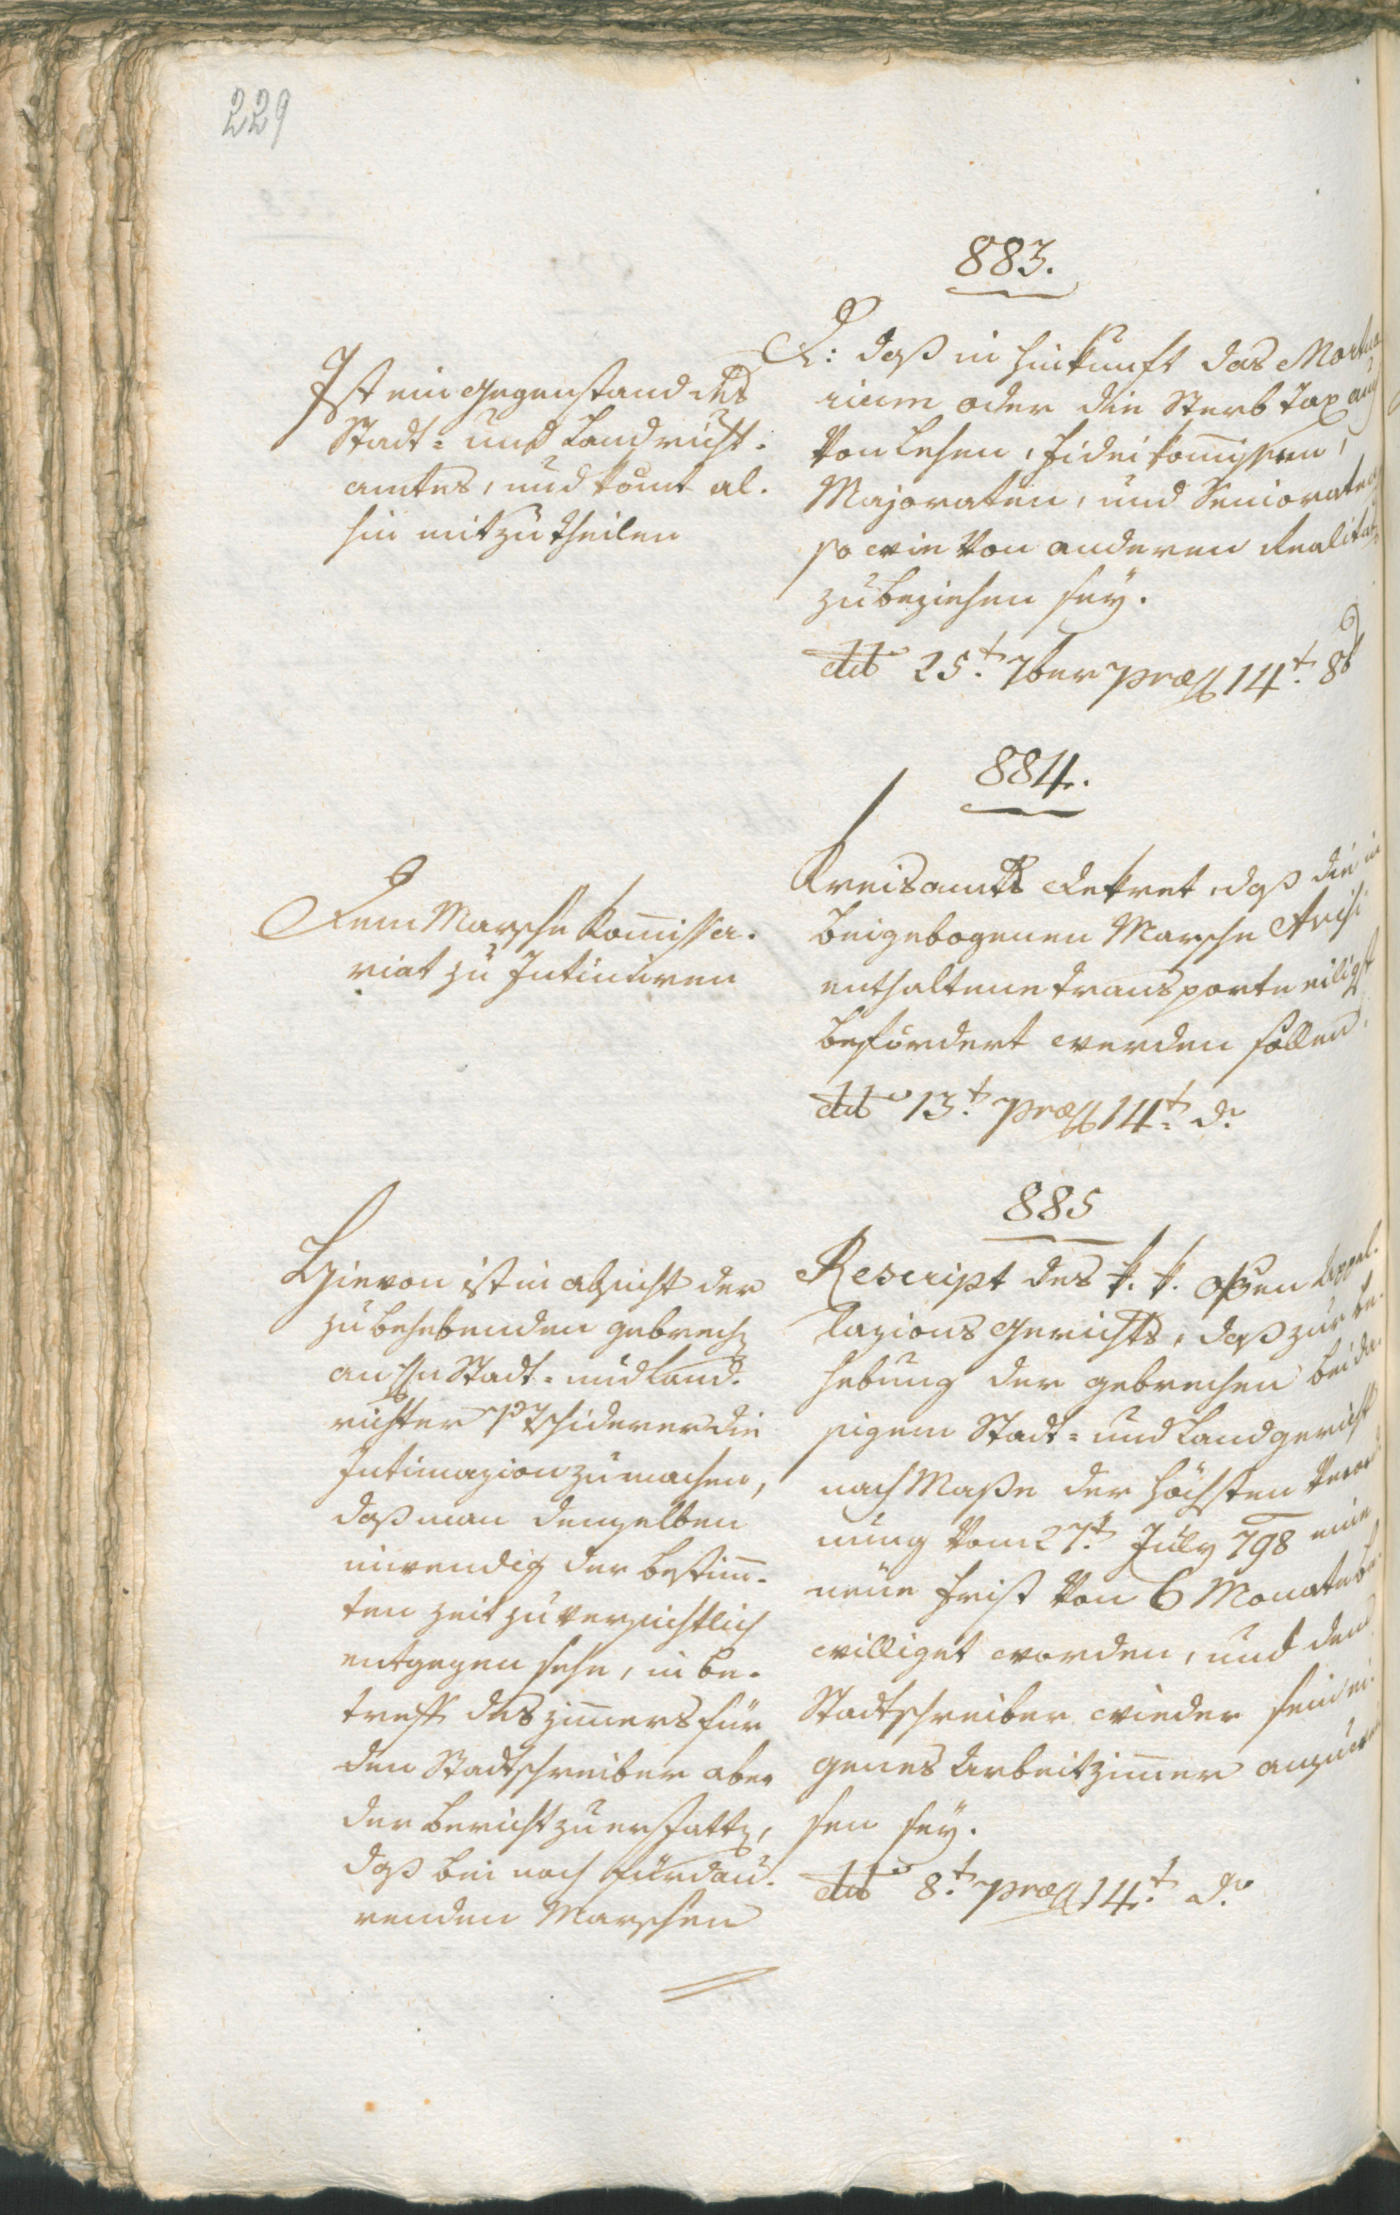 229
883.
Ist ein Gegenstand des
Stadt- und Landricht-
amtes, und kömt al-
hin mitzutheilen
D: daß in Hinkunft das Mortua
rium oder die Sterb Tax auch
von Lehen, Fideikommissen,
Majoraten, und Senioraten
so wie von anderen Realität
zu beziehen sey.
ddo 25t. 7ber præs 14t. 8b
884.
Dem Marsche Kommissa-
riat zu Intimiren
Kreisamts Dekret, daß die in
beigebogenen Marsche
enthaltene Transporte eiligst
befördert werden sollen.
ddo 13t. præs 14t. d.
885
Hievon ist in Absicht der
zu behebenden Gebrech
an Hn Stadt- und Land-
richter v Tschiderer die
Intimazion zu machen,
daß man denselben
inwendig der bestimm-
ten Zeit zuversichtlich
entgegen sehe, in be-
treff des Zimmers für
den Stadtschreiber aber
der Bericht zu erstatt,
daß bei noch fürdau-
renden Marschen
Rescript des k. k. Appel-
lazions Gerichts, daß zur be-
hebung der Gebrechen bei da-
sigem Stadt- und Landgericht
nach Maße der höchsten Verord
nung vom 27t. July 798 eine
neue Frist von 6 Monate be
williget worden, und dem
Stadtschreiber wieder sein ei-
genes Arbeitzimmer anzuwei
sen sey.
ddo 8t. præs 14t. do